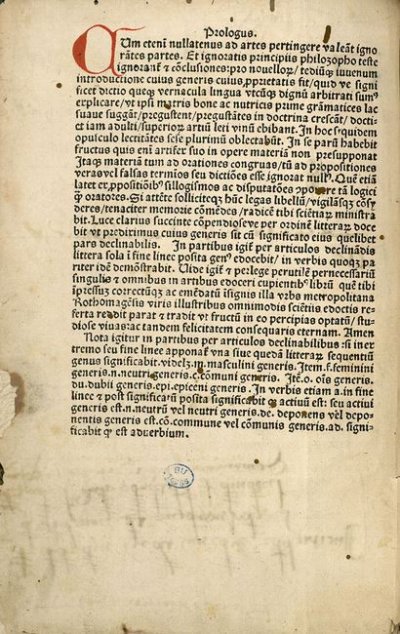 Prologus.
CUm eteni nullatenus ad artes pertingere valeãt igno
rãtes partes. Et ignoratis principiis philozopho teste
ignorant & cõclusiones: pro novellorꝝ / tediũqꝫ iuvenum
introductione cuius generis cuius pprietatis sit / quid ve signi
ficet dictio queqꝫ vernacula lingua vtcũqꝫ dignũ arbitrati sumꝰ
explicare / vt ipsi matris bone ac nutricis prime grãmatices lac
suave suggãt / pregustent / pregustãtes in doctrina crescãt / docti
et iam adulti / superiorꝝ artiũ leti vinũ ebibant. In hoc siquidem
opusculo lectitãtes sese plurimũ oblectabũt. In se parũ habebit
fructus quis eni artifex suo in opere materiã non presupponat
Itaqꝫ materiã tum ad orationes congruas / tũ ad propositiones
veras vel falsas terminos seu dictiões esse ignorat nullꝰ. Que etiã
latet ex ppositiõibꝰ sillogismos ac disputatões logici
qꝫ oratores. Si attẽte solliciteqꝫ hũc legas libellũ / vigilãsqꝫ cõsy
deres / tenaciter memorie cõmẽdes / radicẽ tibi sciẽtiarꝝ ministra
bit. Luce clarius succincte cõpendioseve per ordinẽ litterarꝝ doce
bit vt prediximus cuius generis sit cũ significato eius quelibet
pars declinabilis. In partibus igif per articulos declinãdis
littera sola ĩ fine linee posita genꝰ edocebit / in verbis quoqꝫ pa
riter idẽ demõstrabit. Vide igif & perlege perutilẽ pernecessariũ
singulis & omnibus in artibus edoceri cupientibꝰ librũ quẽ tibi
ĩpressuꝫ correctũqꝫ ac emẽdatũ isignis illa vrbs metropolitana
Rothomagẽsis viris illustribus omnimodis sciẽtiis edoctis re
ferta reddit parat & tradit vt fructũ in eo percipias optatũ / stu-
diose vivas: ac tandem felicitatem consequaris eternam. Amen
Nota igitur in partibus per articulos declinabilibus: si in ex
tremo seu fine linee apponaf vna sive quedã litterarꝝ sequentiũ
genus significabit. videlꝫ. m. masculini generis. Item. f. feminini
generis. n. neutri generis. c. cõmuni generis. Itẽ. o. oĩs generis.
du. dubii generis. epi. epiceni generis. In verbis etiam a. in fine
linee & post significatũ posita significabit qꝫ activũ est: seu activi
generis est. n. neutrũ vel neutri generis. de. deponens vel depo-
nentis generis est. cõ. commune vel cõmunis generis. ad. signi-
ficabit qꝫ est adverbium.